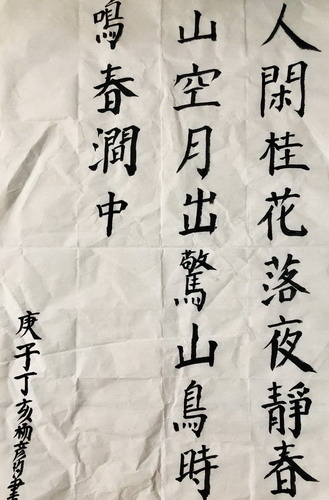 人閑桂花落夜靜春
山空月出驚山鳥時
鳴春澗中
庚子丁亥楊彦均書